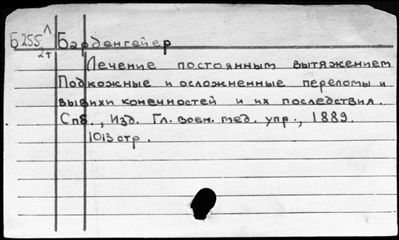 Б255 Л Барденгейер
2т
Лечение постоянным вытяжением
Подкожные и осложненные переломы и
вывихи конечностей и их последствия.
Спб., Изд. Гл. воен. мед. упр., 1889.
1013 стр.